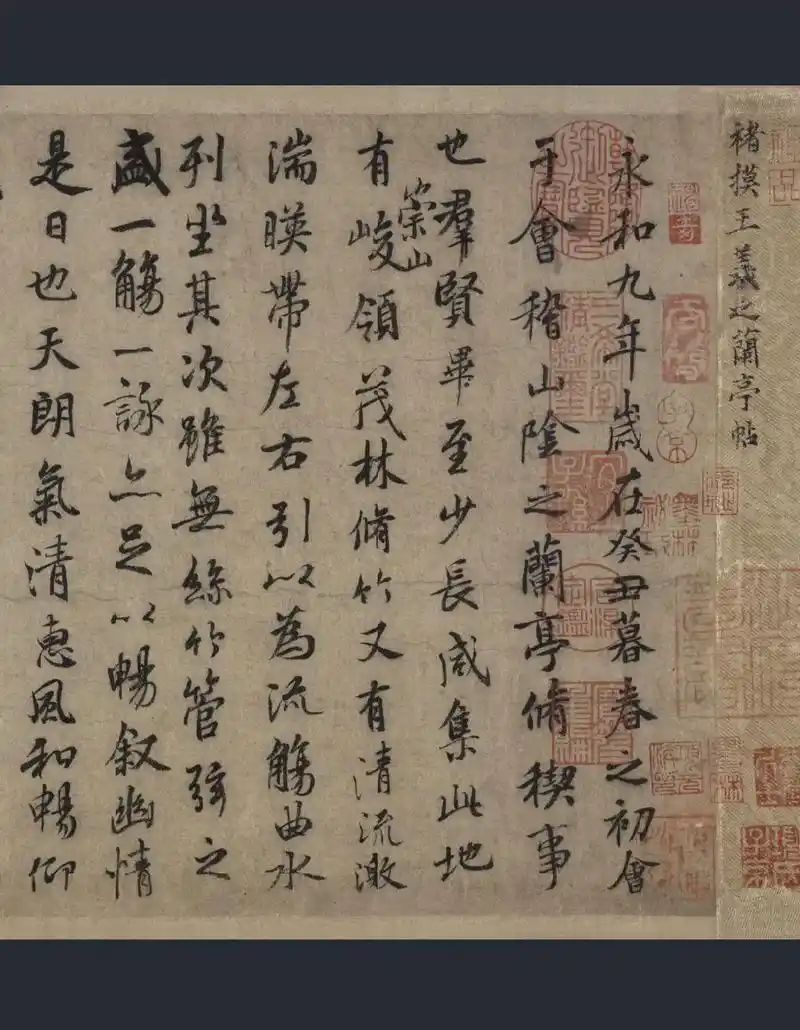 褚摸王羲之蘭亭帖
永和九年歲在癸丑暮春之初會
于會稽山陰之蘭亭脩稧事
也羣賢畢至少長咸集此地
有崇山峻領茂林脩竹又有清流激
湍暎帶左右引以為流觴曲水
列坐其次雖無絲竹管弦之
盛一觴一詠亦足以暢叙幽情
是日也天朗氣清惠風和暢仰